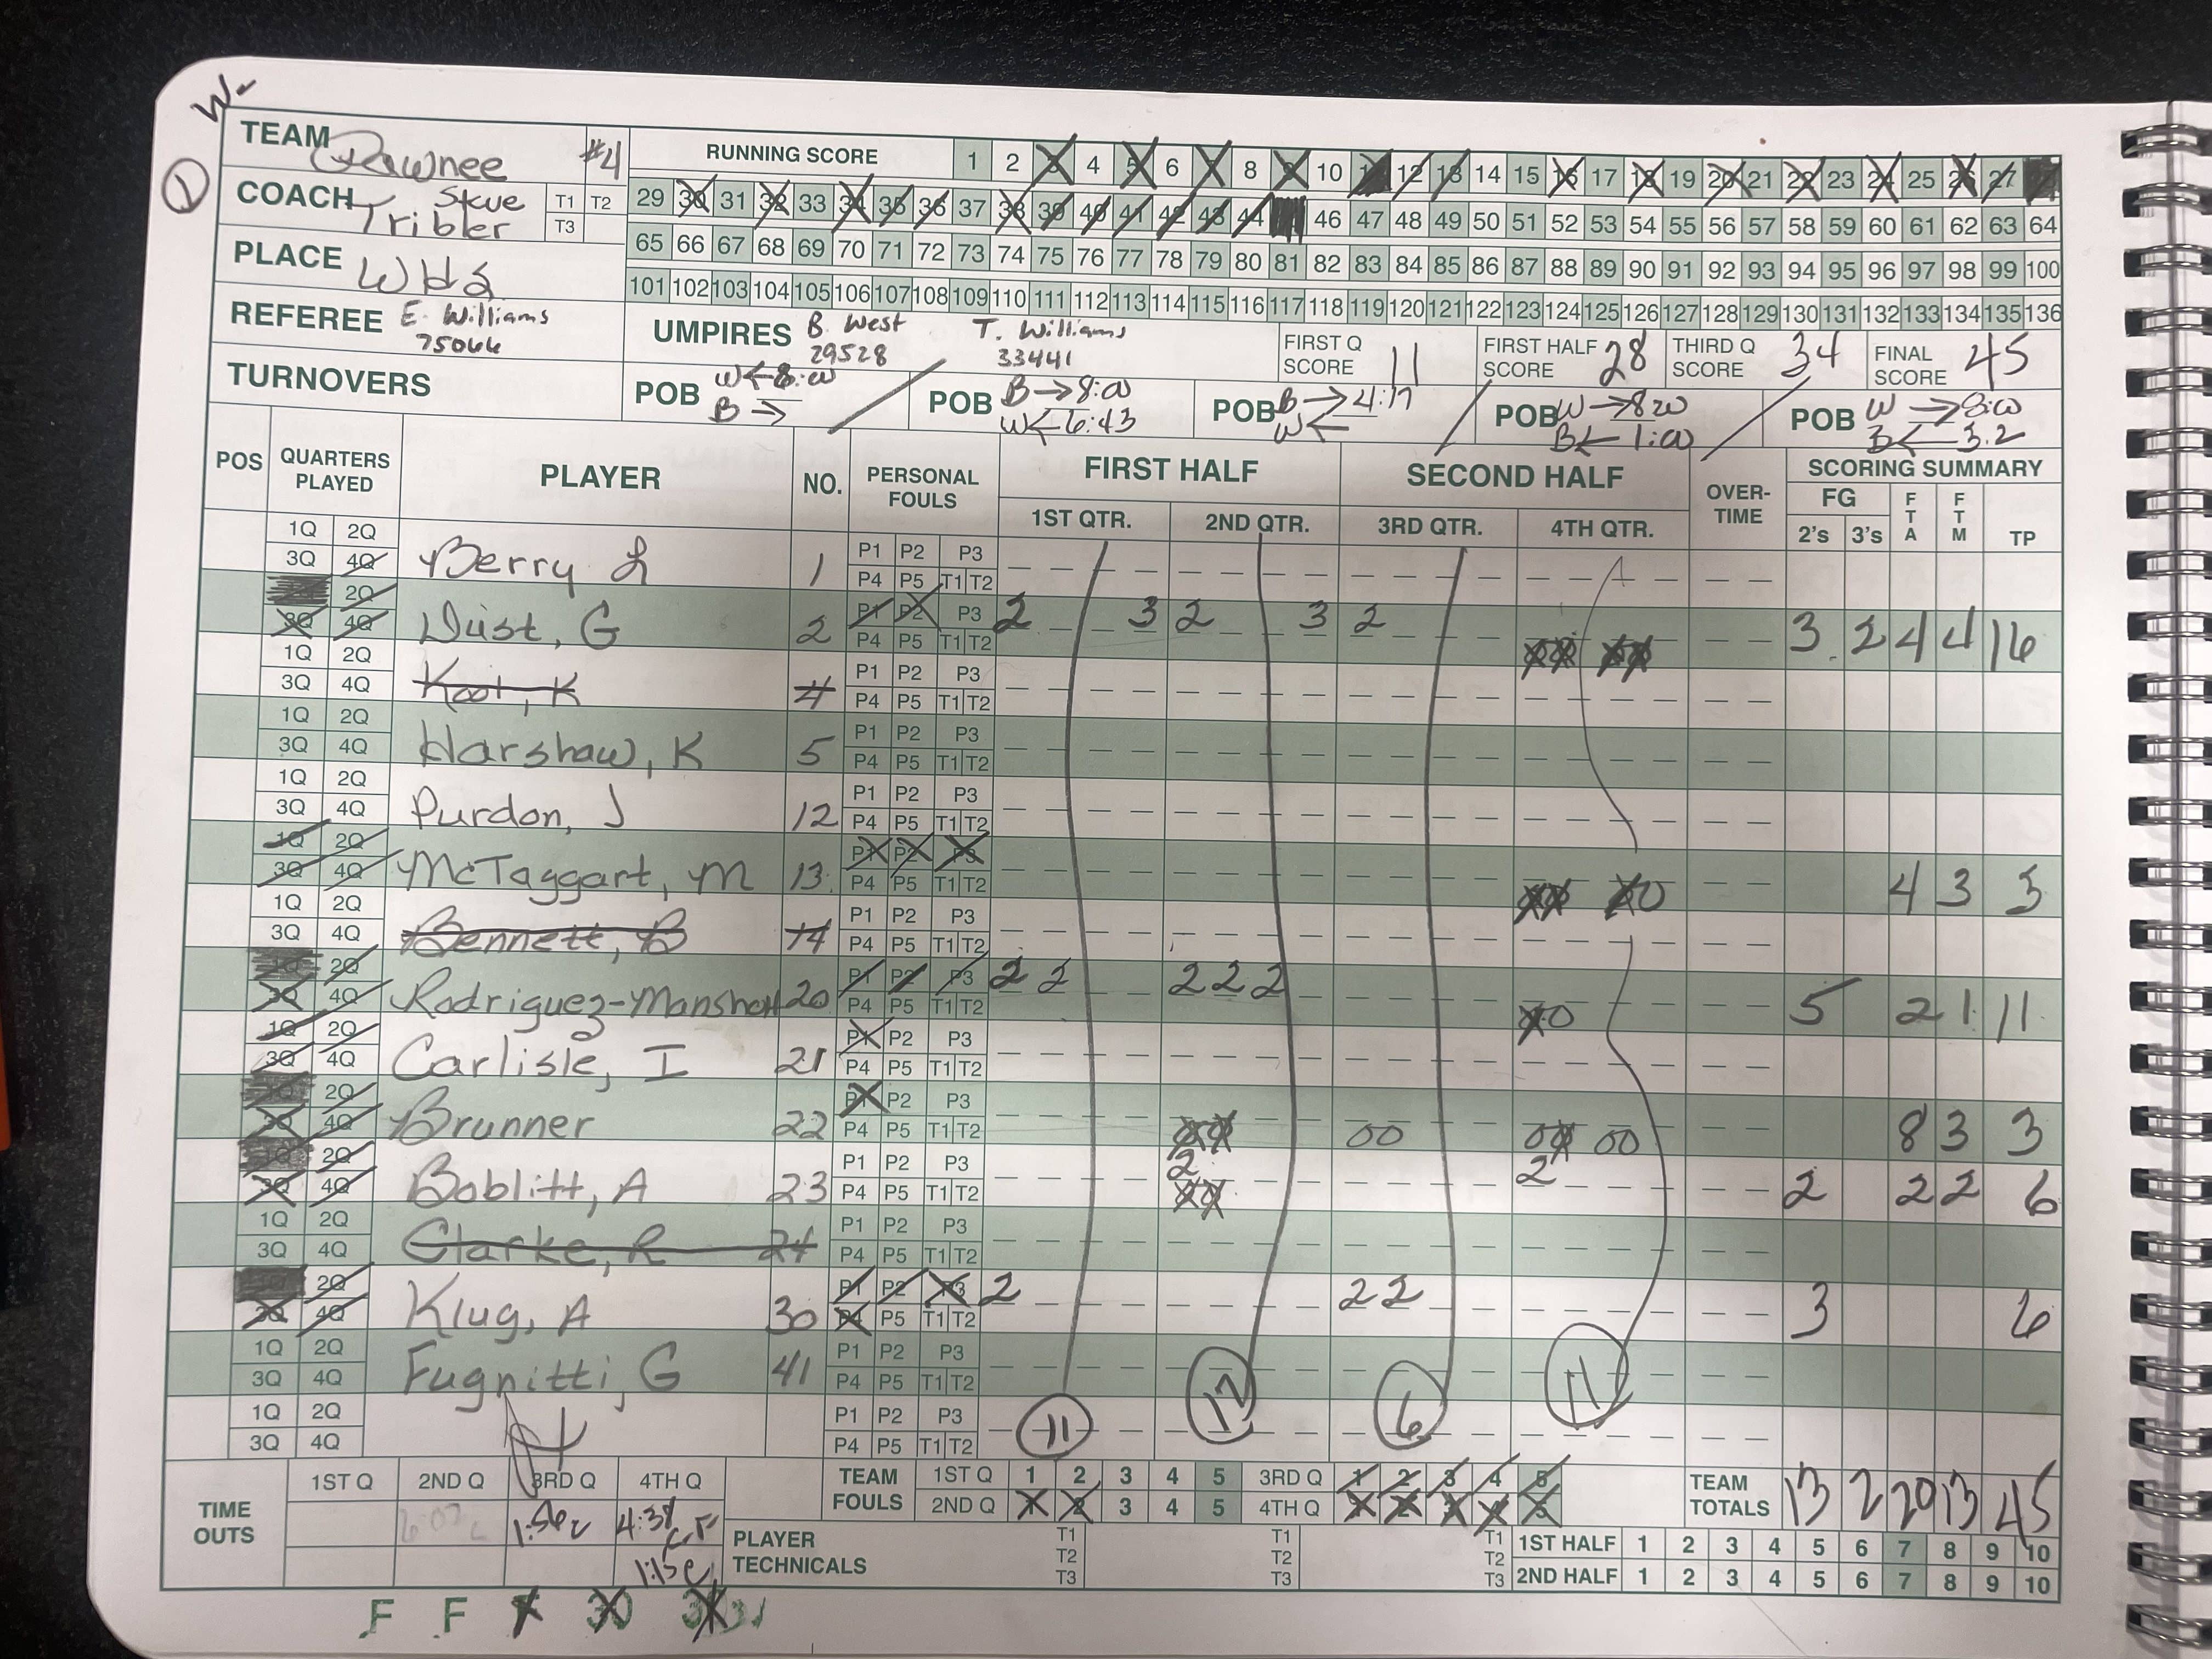 W-
TEAM Pawnee #4
RUNNING SCORE 1 2 3 4 5 6 7 8 9 10 11 12 13 14 15 16 17 18 19 20 21 22 23 24 25 26 27
1
COACH Steve Tribler T1 T2 T3
29 30 31 32 33 34 35 36 37 38 39 40 41 42 43 44 46 47 48 49 50 51 52 53 54 55 56 57 58 59 60 61 62 63 64
65 66 67 68 69 70 71 72 73 74 75 76 77 78 79 80 81 82 83 84 85 86 87 88 89 90 91 92 93 94 95 96 97 98 99 100
PLACE WHS
101 102 103 104 105 106 107 108 109 110 111 112 113 114 115 116 117 118 119 120 121 122 123 124 125 126 127 128 129 130 131 132 133 134 135 136
REFEREE E. Williams 75066
UMPIRES B. West 29528 T. Williams 33441
FIRST Q SCORE 11 FIRST HALF SCORE 28 THIRD Q SCORE 34 FINAL SCORE 45
TURNOVERS
POB W ← 8:00 B →
POB B → 8:00 W ← 6:43
POB B → 4:17 W ←
POB W → 8:00 B ← 1:00
POB W → 8:00 B ← 3.2
POS QUARTERS PLAYED PLAYER NO. PERSONAL FOULS FIRST HALF SECOND HALF OVER-TIME SCORING SUMMARY
1ST QTR. 2ND QTR. 3RD QTR. 4TH QTR. FG 2's 3's FTA FTM TP
1Q 2Q P1 P2 P3
3Q 4Q Berry L 1 P4 P5 T1 T2
2Q P1 P2 P3 2 3 2 3 2
3Q 4Q Dust, G 2 P4 P5 T1 T2 3 2 4 4 16
1Q 2Q P1 P2 P3
3Q 4Q Koot, K 4 P4 P5 T1 T2
1Q 2Q P1 P2 P3
3Q 4Q Harshaw, K 5 P4 P5 T1 T2
1Q 2Q P1 P2 P3
3Q 4Q Purdon, J 12 P4 P5 T1 T2
1Q 2Q P1 P2 P3
3Q 4Q McTaggart, M 13 P4 P5 T1 T2 4 3 3
1Q 2Q P1 P2 P3
3Q 4Q Bennett, B 14 P4 P5 T1 T2
1Q 2Q P1 P2 P3 2 2 2 2 2
3Q 4Q Rodriguez-Manshon 20 P4 P5 T1 T2 5 2 1 11
1Q 2Q P1 P2 P3
3Q 4Q Carlisle, I 21 P4 P5 T1 T2
2Q P1 P2 P3
3Q 4Q Brunner 22 P4 P5 T1 T2 00 00 8 3 3
2Q P1 P2 P3 2 2
3Q 4Q Boblitt, A 23 P4 P5 T1 T2 2 2 2 6
1Q 2Q P1 P2 P3
3Q 4Q Clarke, R 24 P4 P5 T1 T2
2Q P1 P2 P3 2 2 2
3Q 4Q Klug, A 30 P4 P5 T1 T2 3 6
1Q 2Q P1 P2 P3
3Q 4Q Fugnitti, G 41 P4 P5 T1 T2
1Q 2Q P1 P2 P3
3Q 4Q P4 P5 T1 T2 11 17 6 11
TIME OUTS 1ST Q 2ND Q 3RD Q 4TH Q
6:07 1:56 4:38
1:15
TEAM FOULS 1ST Q 1 2 3 4 5 3RD Q 1 2 3 4 5
2ND Q 1 2 3 4 5 4TH Q 1 2 3 4 5
TEAM TOTALS 13 2 20 13 45
PLAYER TECHNICALS T1 T2 T3 T1 T2 T3 T1 T2 T3
1ST HALF 1 2 3 4 5 6 7 8 9 10
2ND HALF 1 2 3 4 5 6 7 8 9 10
F F 30 31